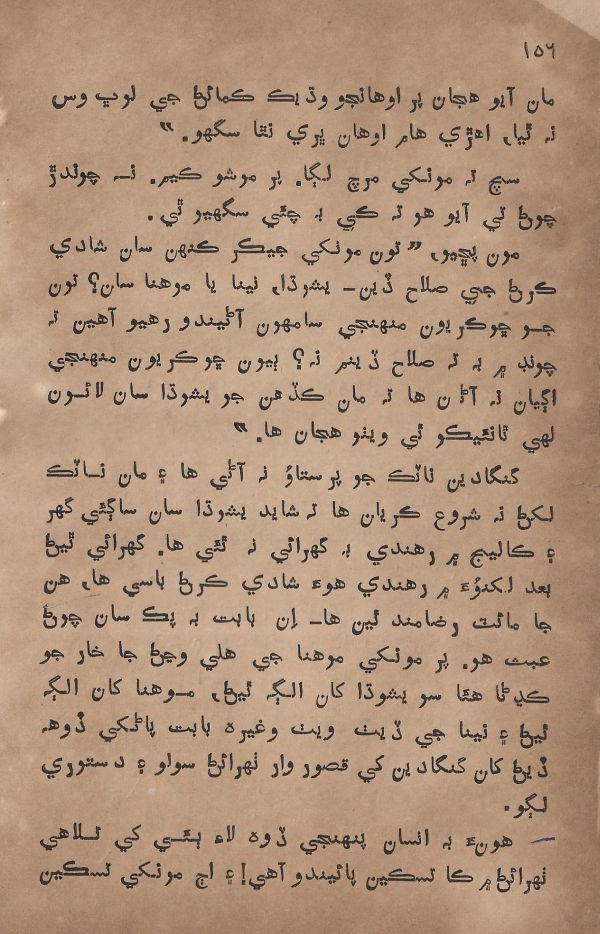 ١٥٦
مان آيو هجان پر اوهانجو وڌيڪ ڪمائڻ جي لوڀ وس
نہ ٿيا، اهڙي هام اوهان ڀري نٿا سگهو. “
سچ تہ مونکي مرچ لڳا. پر موشو ڪيم. نـ چوندڙ
چوڻ تي آيو هو تہ ڪي بہ چئي سگهيو ٿي.
مون پڇيو، ”تون مونکي جيڪر ڪنهن سان شادي
ڪرڻ جي صلاح ڏين- يشوڌا، نينا يا موهنا سان؟ تون
جـو ڇوڪريون منهنجي سامهون آڻيندو رهيو آهين تہ
چونڊ ۾ بہ تہ صلاح ڏينم نہ؟ ٻيون ڇوڪريون منهنجي
اڳيان نہ آڻن ها تہ مان ڪڏهن جو يشوڌا سان لائـون
لهي ٺانئيڪو ٿي ويٺو هجان ها. “
گنگادين ناٽڪ جو پرستاؤ نہ آڻي ها ۽ مان نـاٽڪ
لکڻ نہ شروع ڪريان ها تہ شايد يشوڌا سان ساڳئي گهر
۽ ڪاليج ۾ رهندي بہ گهرائي نہ ٿئي ها. گهرائي ٿيڻ
بعد لکنؤ ۾ رهندي هوءَ شادي ڪرڻ باسي ها، هن
جا مائٽ رضامند ٿين ها- اِن بابت بہ پڪ سان چوڻ
عبث هو. پر مونکي موهنا جي هلي وڃڻ جا خار جو
ڪڍڻا هئا سو يشوڌا کان الڳہ ٿيڻ، مـوهنا کان الڳہ
ٿيڻ ۽ نينا جي ڏيٺ ويٺ وغيره بابت پاڻکي ڏوهہ
ڏيڻ کان گنگادين کي قصور وار ٺهرائڻ سولو ۽ دستوري
لڳو.
هونءَ بہ انسان پنهنجي ڏوه لاءِ ٻئـي کي ٽـلاهي
ٺهرائڻ ۾ ڪا تسڪين پائيندو آهي! ۽ اڄ مونکي تسڪين